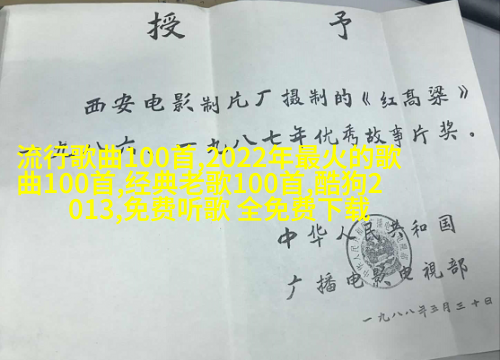 授 予
西安电影制片厂摄制的《红高粱》
一九八六、一九八七年优秀故事片奖。
流行歌曲100首,2022年最火的歌
曲100首,经典老歌100首,酷狗2
013,免费听歌 全免费下载
中华人民共和国
广播电影电视部
一九八八年三月三十日